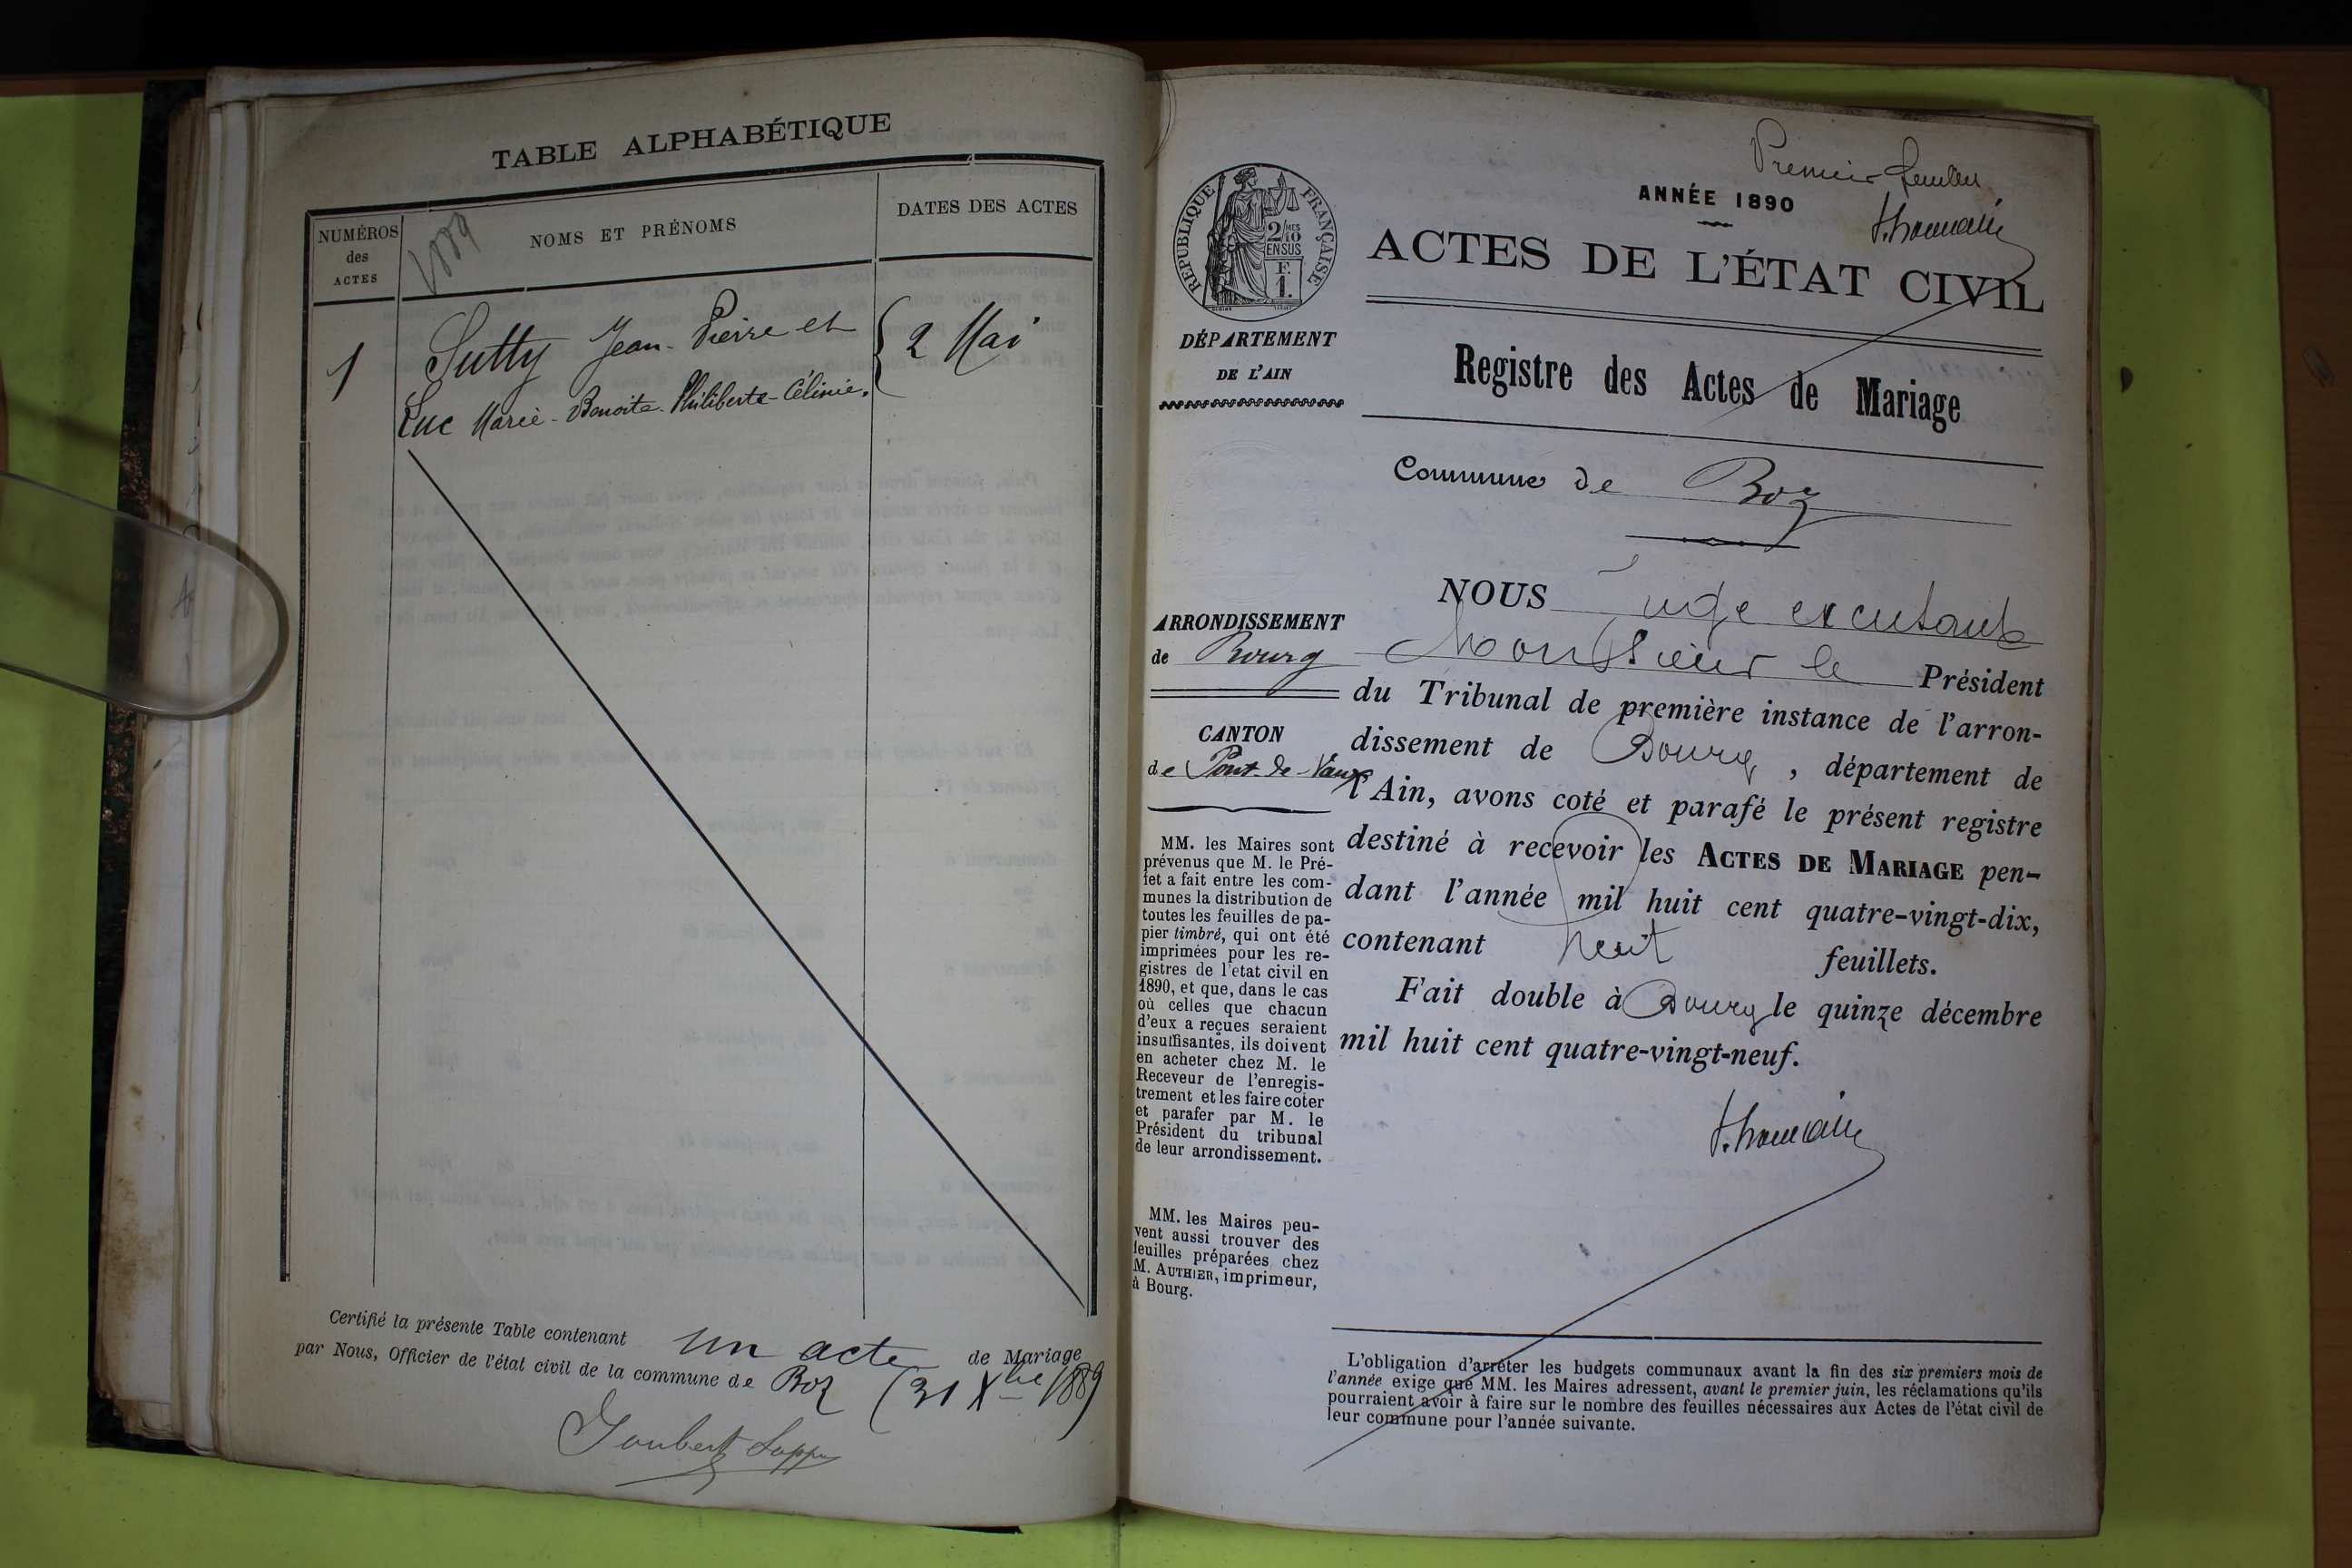 TABLE ALPHABÉTIQUE
NUMÉROS
des
ACTES
1889
NOMS ET PRÉNOMS
DATES DES ACTES
1
Sutty Jean-Pierre et
Luc Marie-Benoite-Philiberte-Célinie.
2 Mai
Certifié la présente Table contenant un acte de Mariage
par Nous, Officier de l'état civil de la commune de Boz (31 Xbre 1889)
Joubert
Premier feuillet
Thomain
RÉPUBLIQUE FRANÇAISE
2/10 MES
EN SUS
F.
1.
ANNÉE 1890
ACTES DE L'ÉTAT CIVIL
DÉPARTEMENT
DE L'AIN
Registre des Actes de Mariage
Commune de Boz
ARRONDISSEMENT
de Bourg
CANTON
de Pont-de-Vaux
MM. les Maires sont
prévenus que M. le Pré-
fet a fait entre les com-
munes la distribution de
toutes les feuilles de pa-
pier timbré, qui ont été
imprimées pour les re-
gistres de l'etat civil en
1890, et que, dans le cas
où celles que chacun
d'eux a reçues seraient
insuffisantes, ils doivent
en acheter chez M. le
Receveur de l'enregis-
trement et les faire coter
et parafer par M. le
Président du tribunal
de leur arrondissement.
MM. les Maires peu-
vent aussi trouver des
feuilles préparées chez
M. AUTHIER, imprimeur,
à Bourg.
NOUS Juge excutant
Monsieur le Président
du Tribunal de première instance de l'arron-
dissement de Bourg, département de
l'Ain, avons coté et parafé le présent registre
destiné à recevoir les ACTES DE MARIAGE pen-
dant l'année mil huit cent quatre-vingt-dix,
contenant huit feuillets.
Fait double à Bourg le quinze décembre
mil huit cent quatre-vingt-neuf.
Thomain
L'obligation d'arrêter les budgets communaux avant la fin des six premiers mois de
l'année exige que MM. les Maires adressent, avant le premier juin, les réclamations qu'ils
pourraient avoir à faire sur le nombre des feuilles nécessaires aux Actes de l'état civil de
leur commune pour l'année suivante.